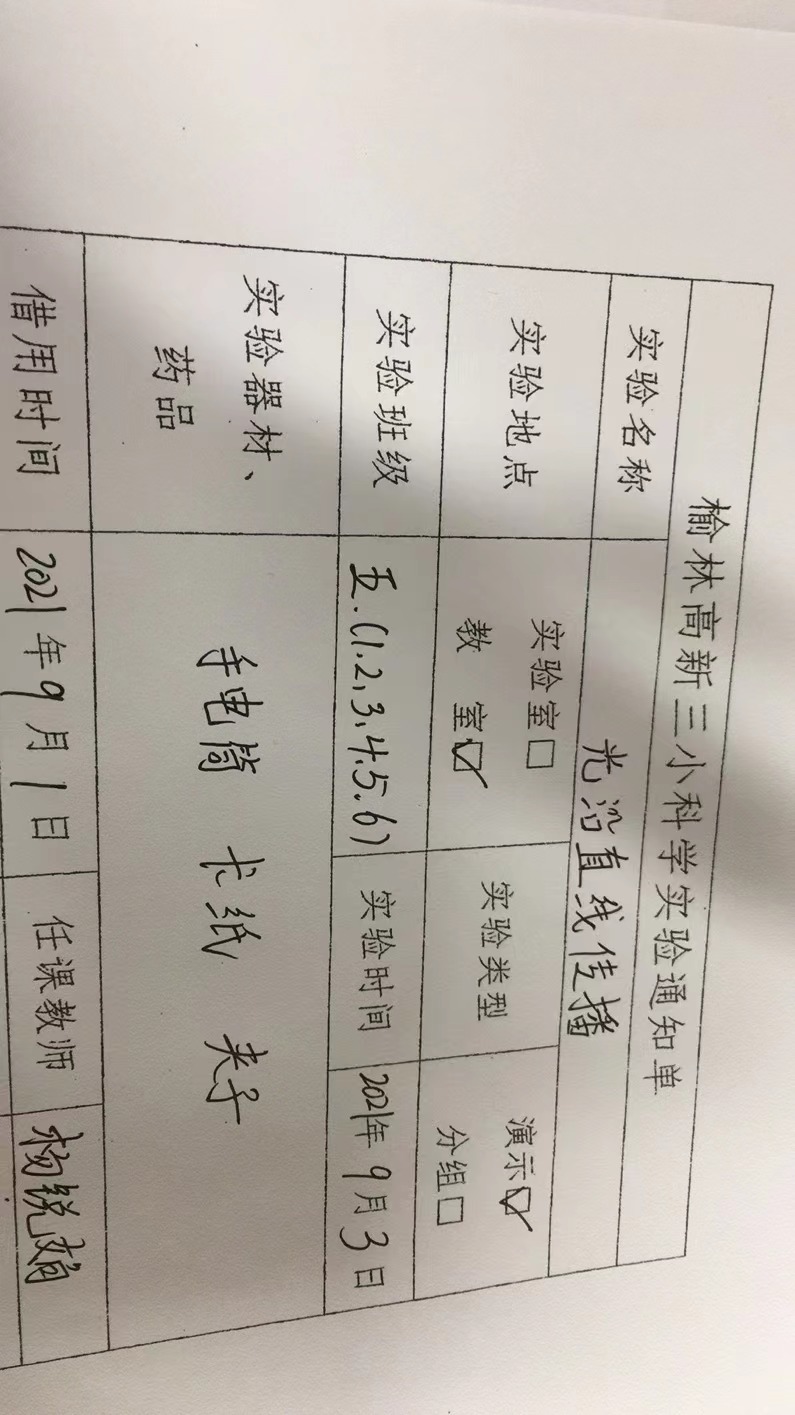 榆林高新三小科学实验通知单
实验名称 光沿直线传播
实验地点 实验室□ 教 室☑ 实验类型 演示☑ 分组□
实验班级 五.(1.2.3.4.5.6) 实验时间 2021年9月3日
实验器材、药品 手电筒 卡纸 夹子
借用时间 2021年9月1日 任课教师 杨锐